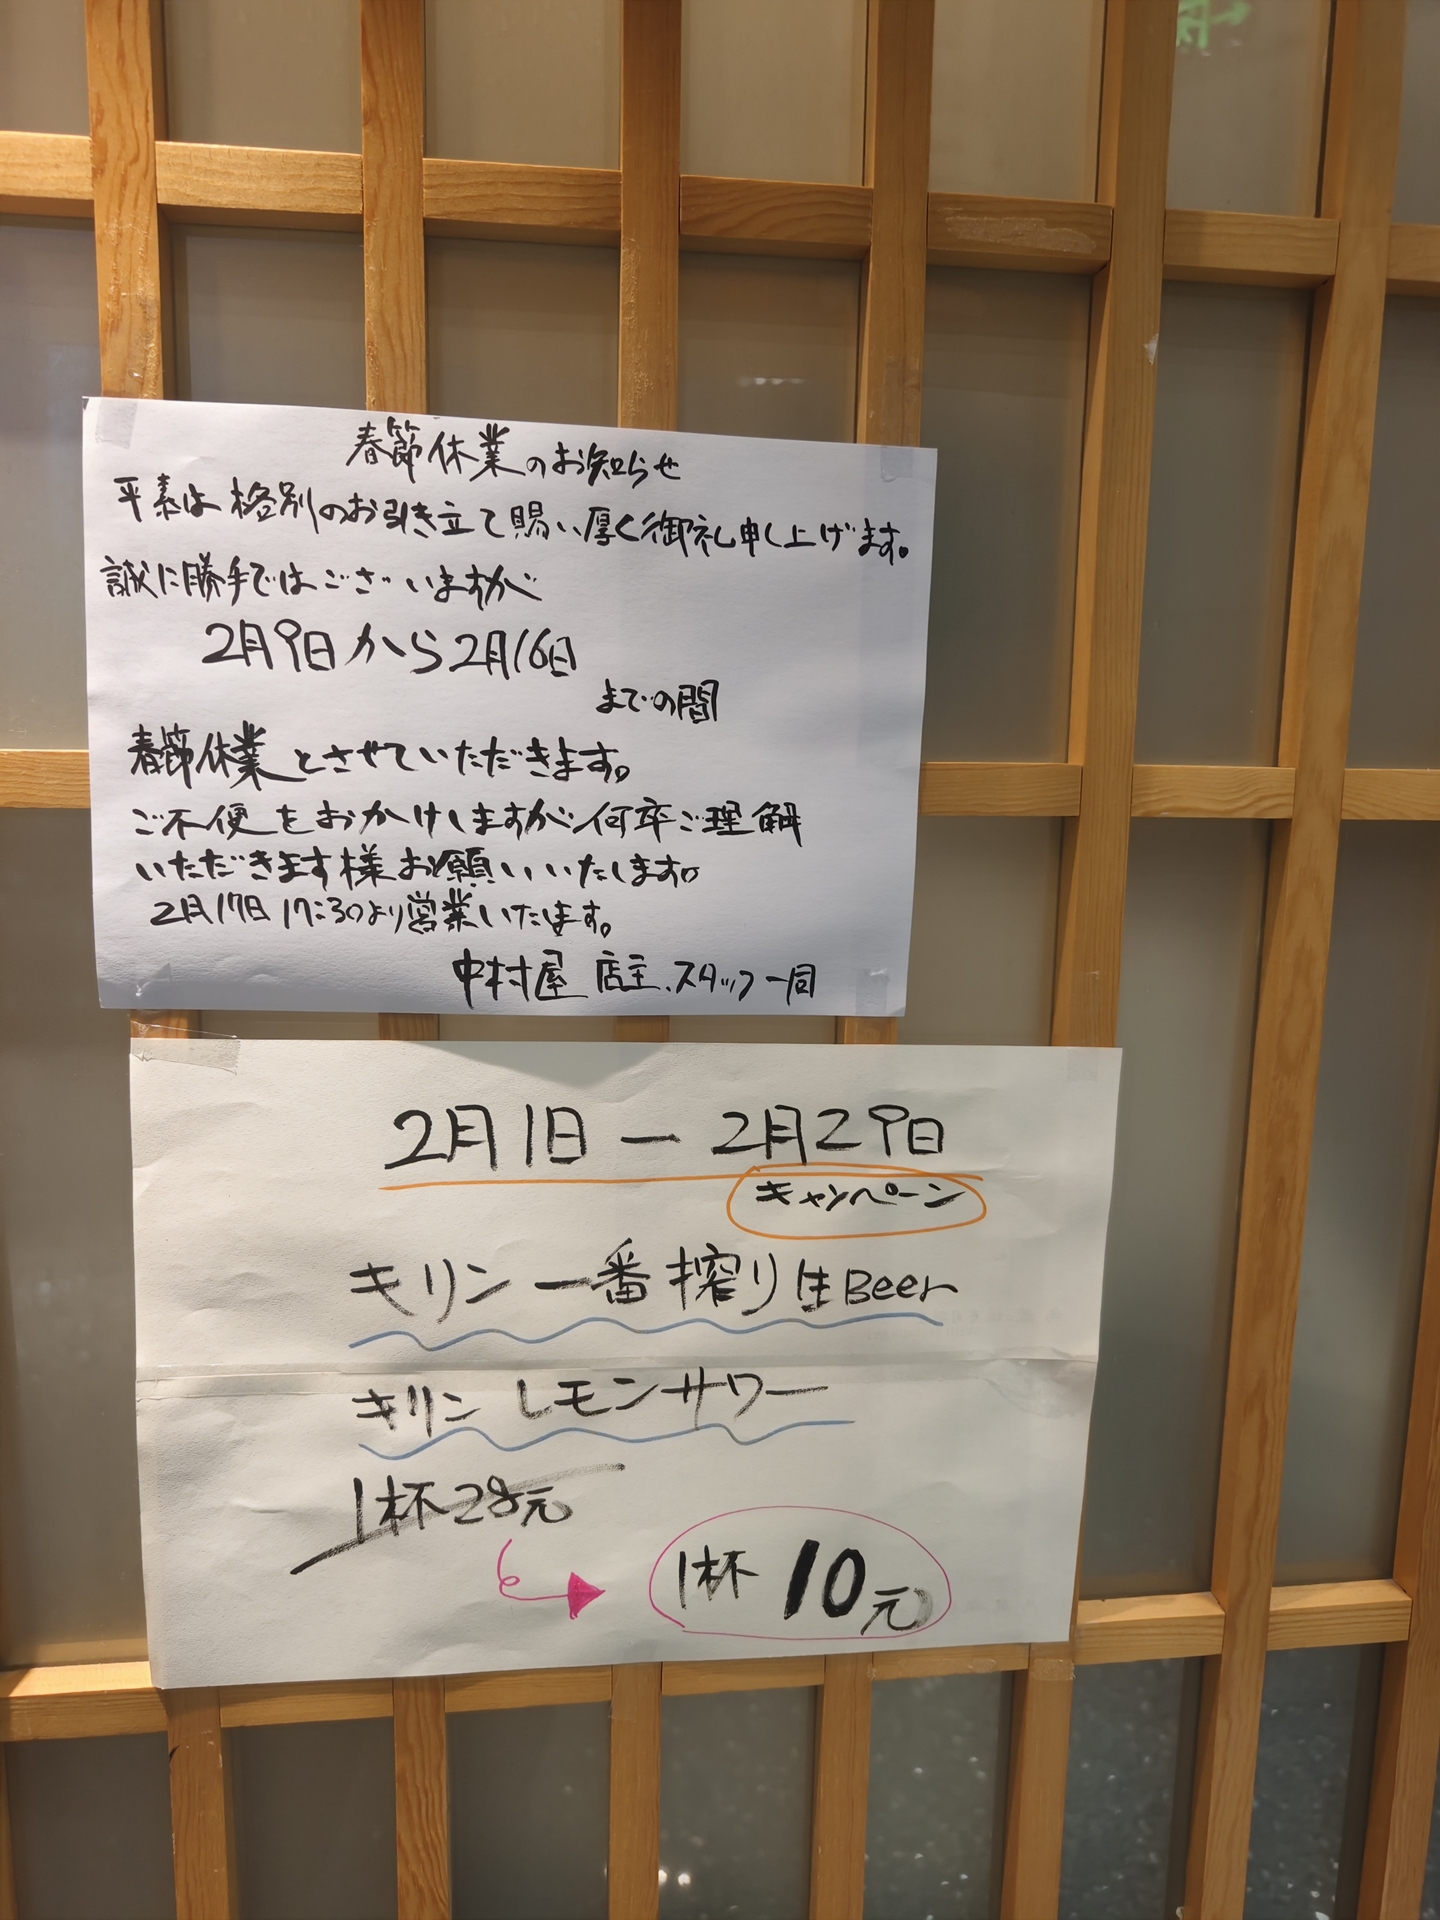 春節休業のお知らせ
平素は格別のお引き立て賜い厚く御礼申し上げます。
誠に勝手ではございますが
2月9日から2月16日
までの間
春節休業とさせていただきます。
ご不便をおかけしますが何卒ご理解
いただきます様お願いいたします。
2月17日 17:30より営業いたします。
中村屋 店主、スタッフ一同
2月1日 ー 2月29日
キャンペーン
キリン 一番搾り生Beer
キリン レモンサワー
1杯28元
1杯 10元